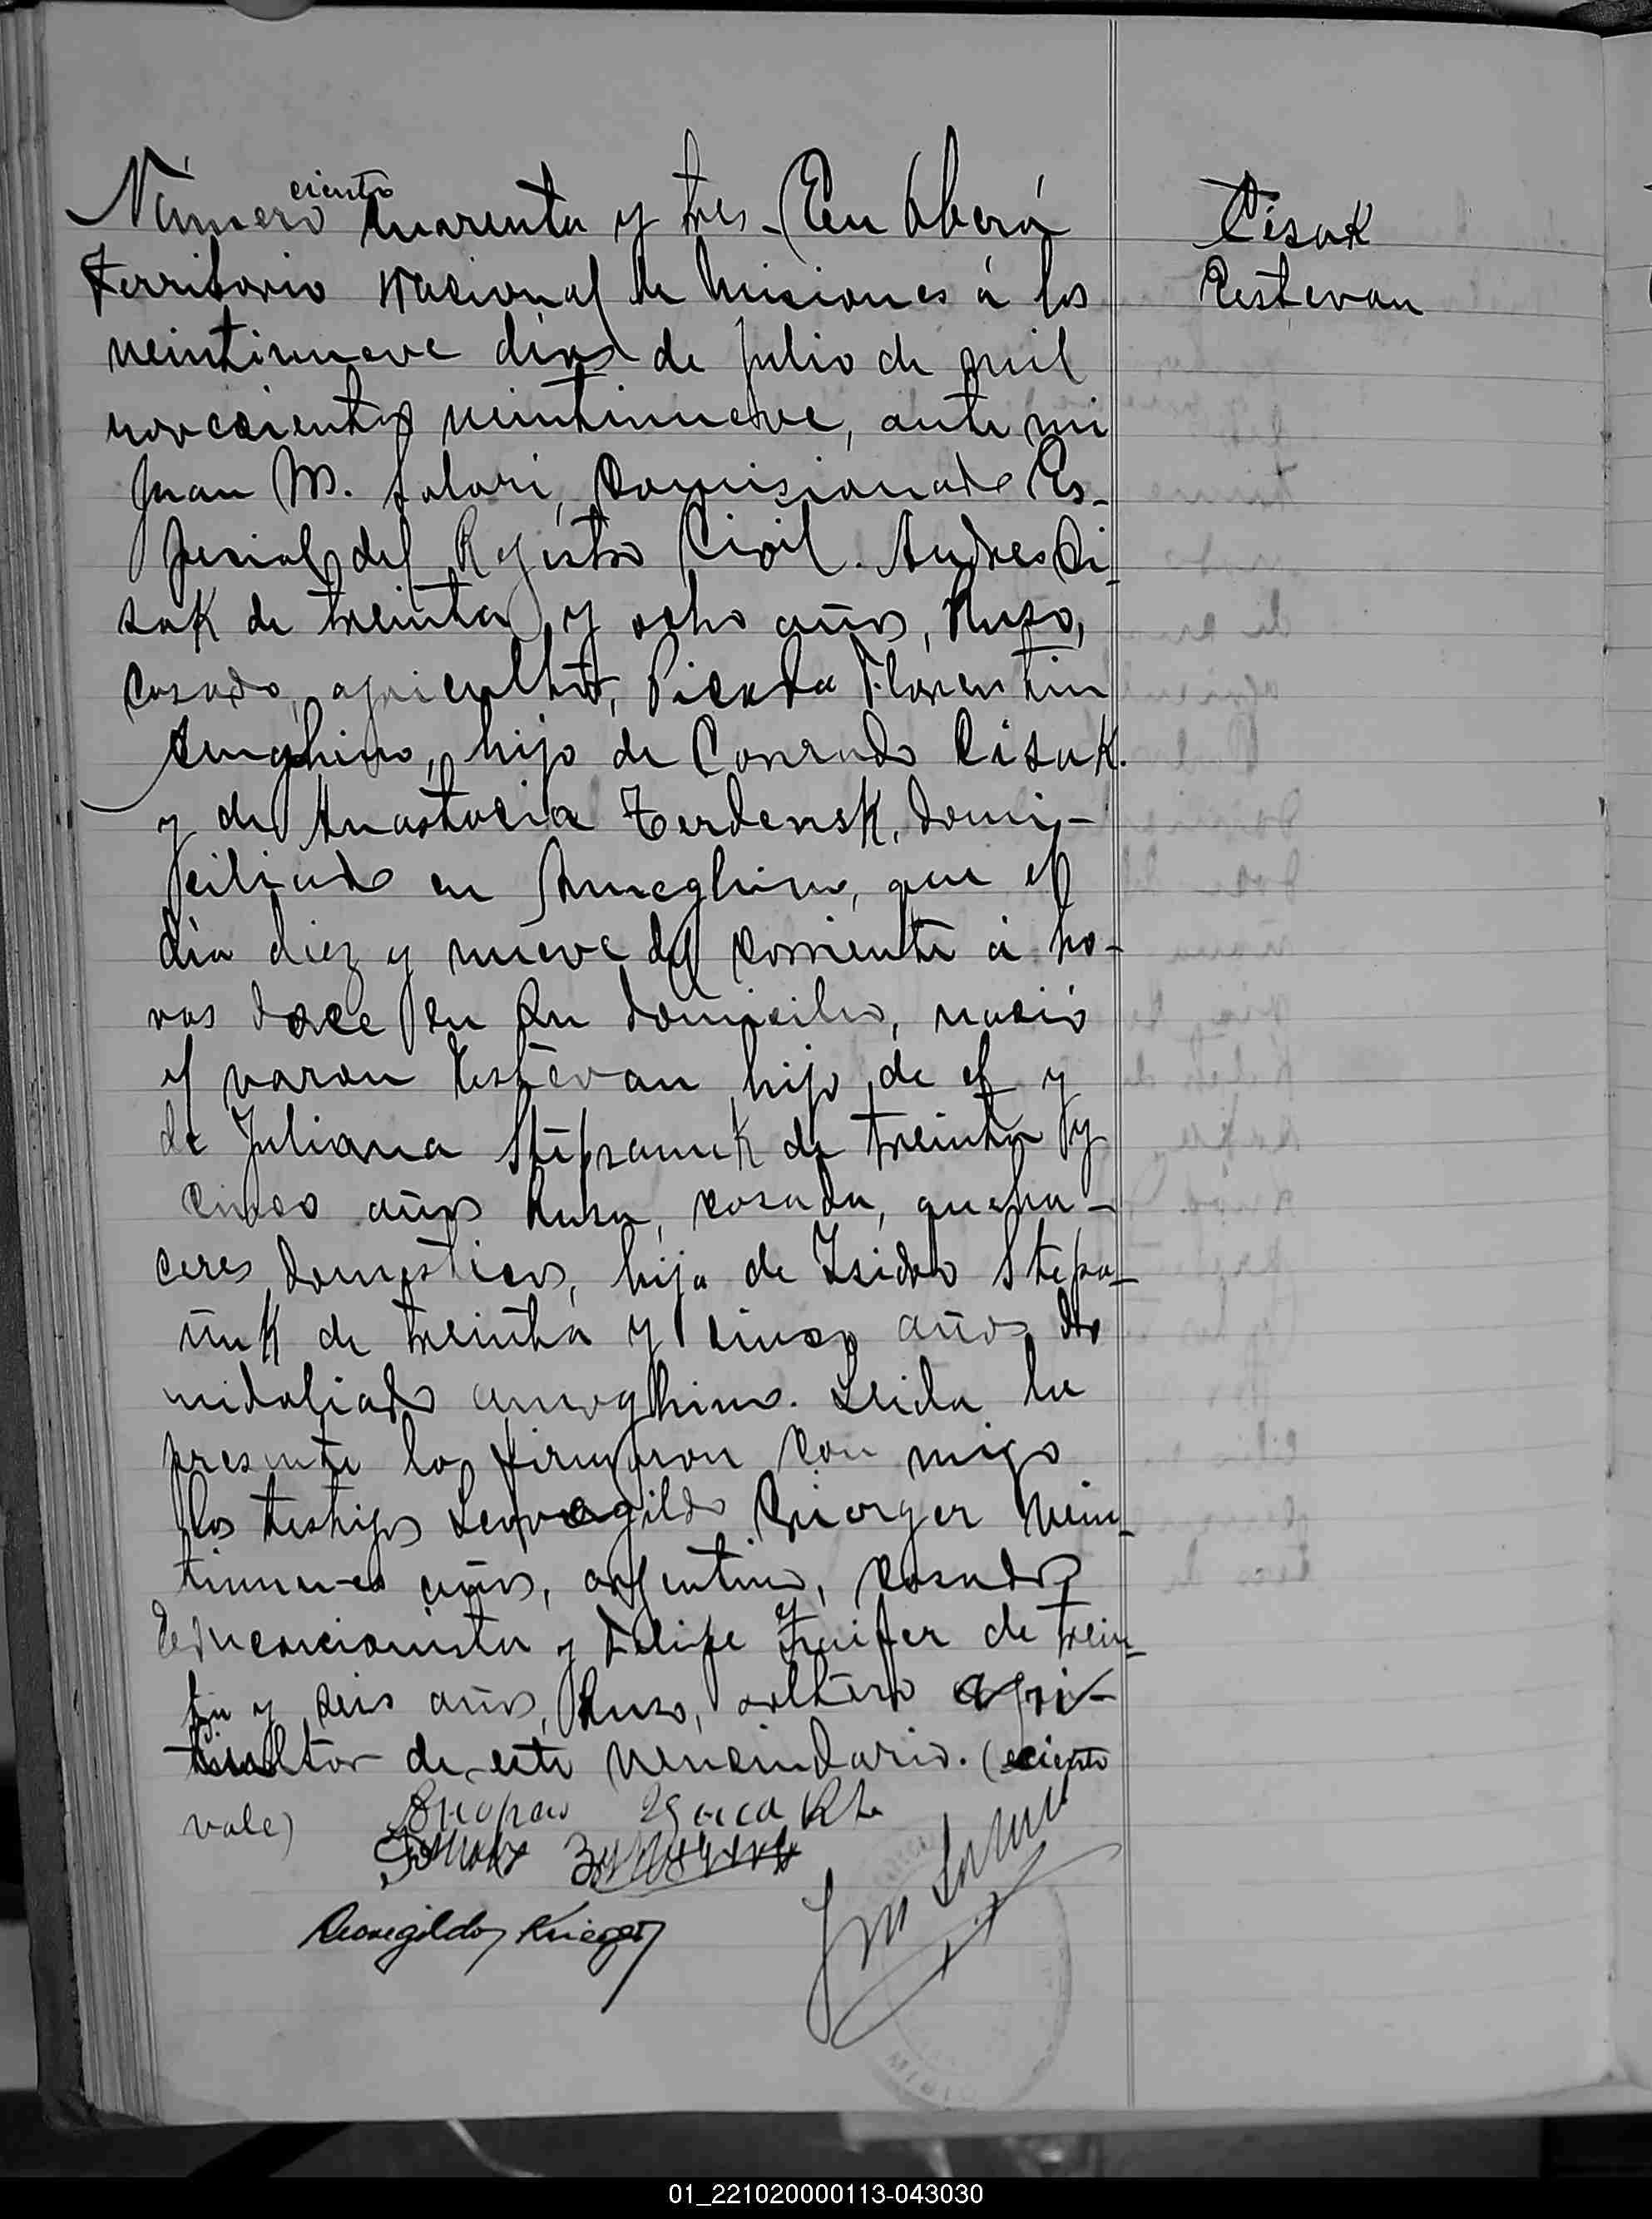 Número ciento cuarenta y tres. En Oberá
Territorio Nacional de Misiones á los
veintinueve dias de Julio de mil
novecientos veintinueve, ante mi
Juan M. Solari, Comisionado Es-
pecial del Registro Civil. Andres Ci-
sak de treinta y ocho años, Ruso,
casado, agricultor, Picada Florentin
Ameghino, hijo de Conrado Cisak.
y de Anastacia Zerdensk, domi-
ciliado en Ameghino, que el
dia diez y nueve del corriente á ho-
ras doce en su domicilio, nació
el varon Estevan hijo de el y
de Juliana de treinta y
cinco años Rusa, casada, queha-
ceres domesticos, hija de Isidro Stepa-
nuk de treinta y cinco años do
midaliado ameghino. Leida la
presente la firmaron con migo
los testigos Leovegildo Crierger vein
tinueve años, argentino, casado,
Educacionista y Felipe de trein
ta y seis años, Ruso, soltero agri-
cultor de este vencindario. (ciento
vale)
Leovegildo Krieger
Cisak
Estevan
01_221020000113-043030